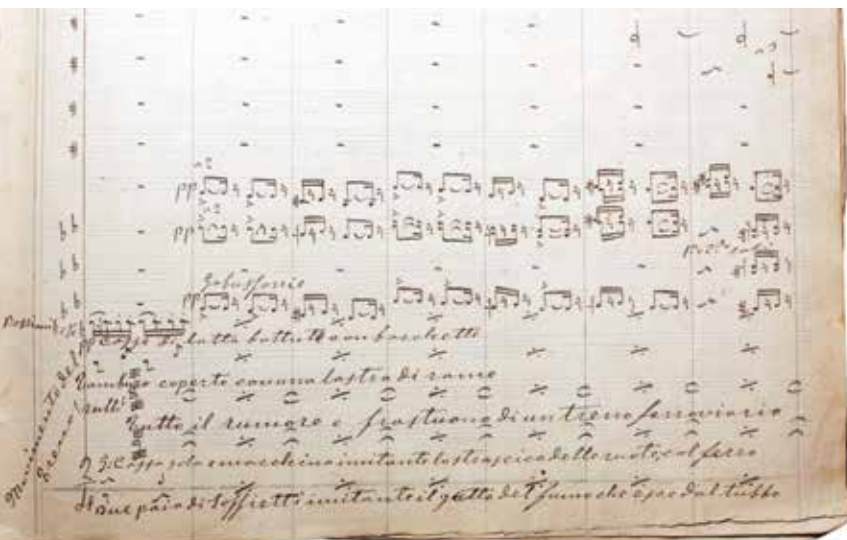 pp
pp
pp
Cassa di latta battuta con bacchette
Tamburo coperto con una lastra di rame
Tutto il rumore e frastuono di un treno ferroviario
G. Cassa sola e macchina imitante lo strascico delle ruote, col ferro
Due paia di Soffietti imitante il getto del fumo che esce dal tubbo
Movimento del
Treno